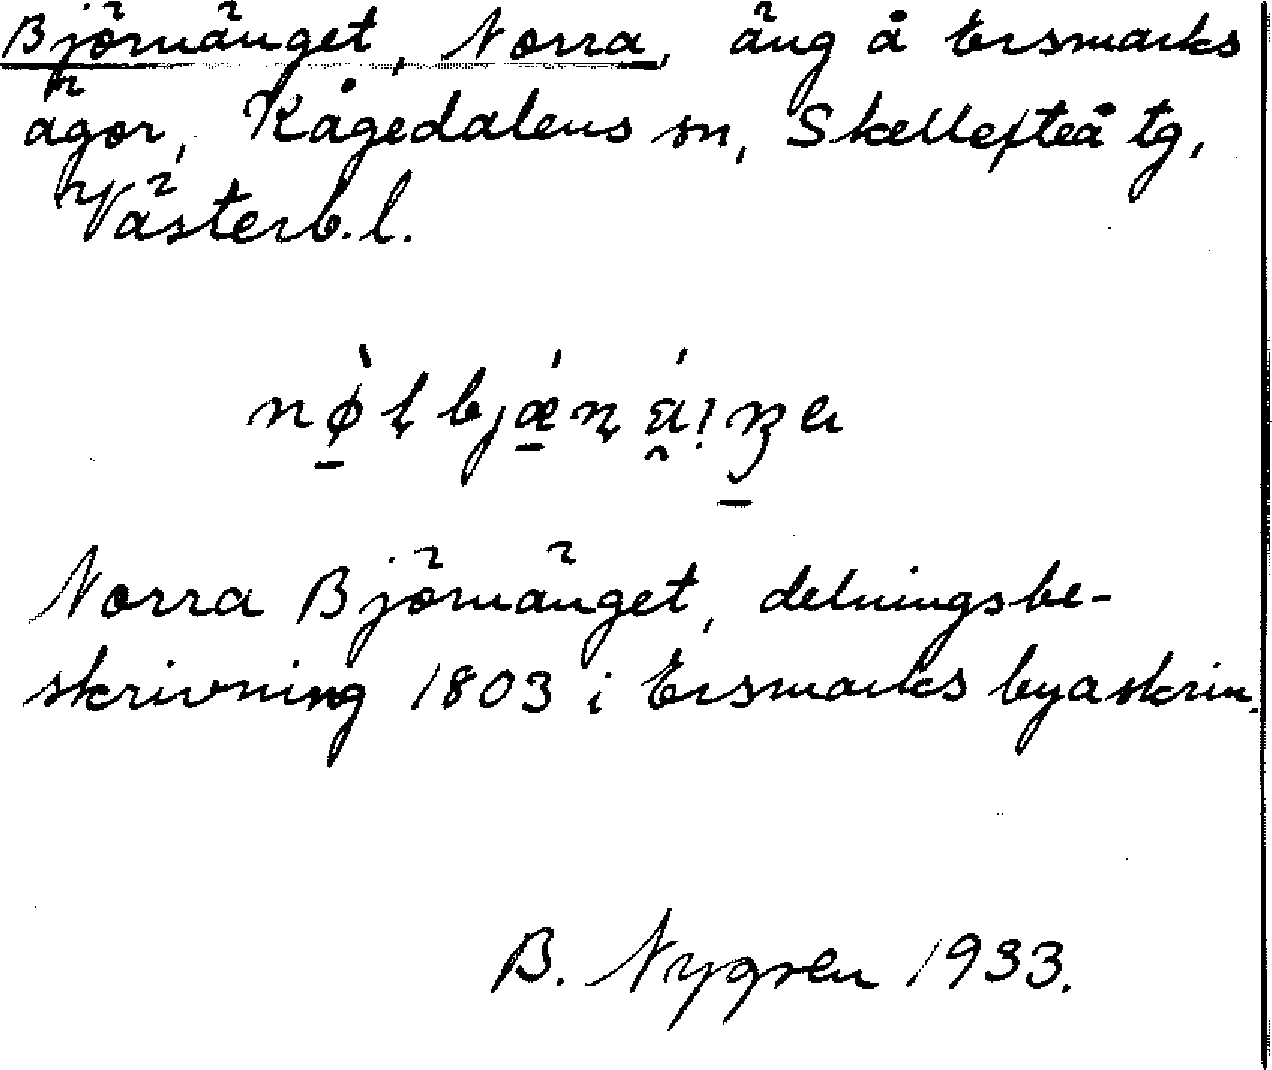 Björnänget, Norra, äng å Ersmarks
ägor, Kågedalens sn, Skellefteå tg,
Västerb.l.
Norra Björnänget, delningsbe-
skrivning 1803 i Ersmarks byaskrin.
B. Nygren 1933.